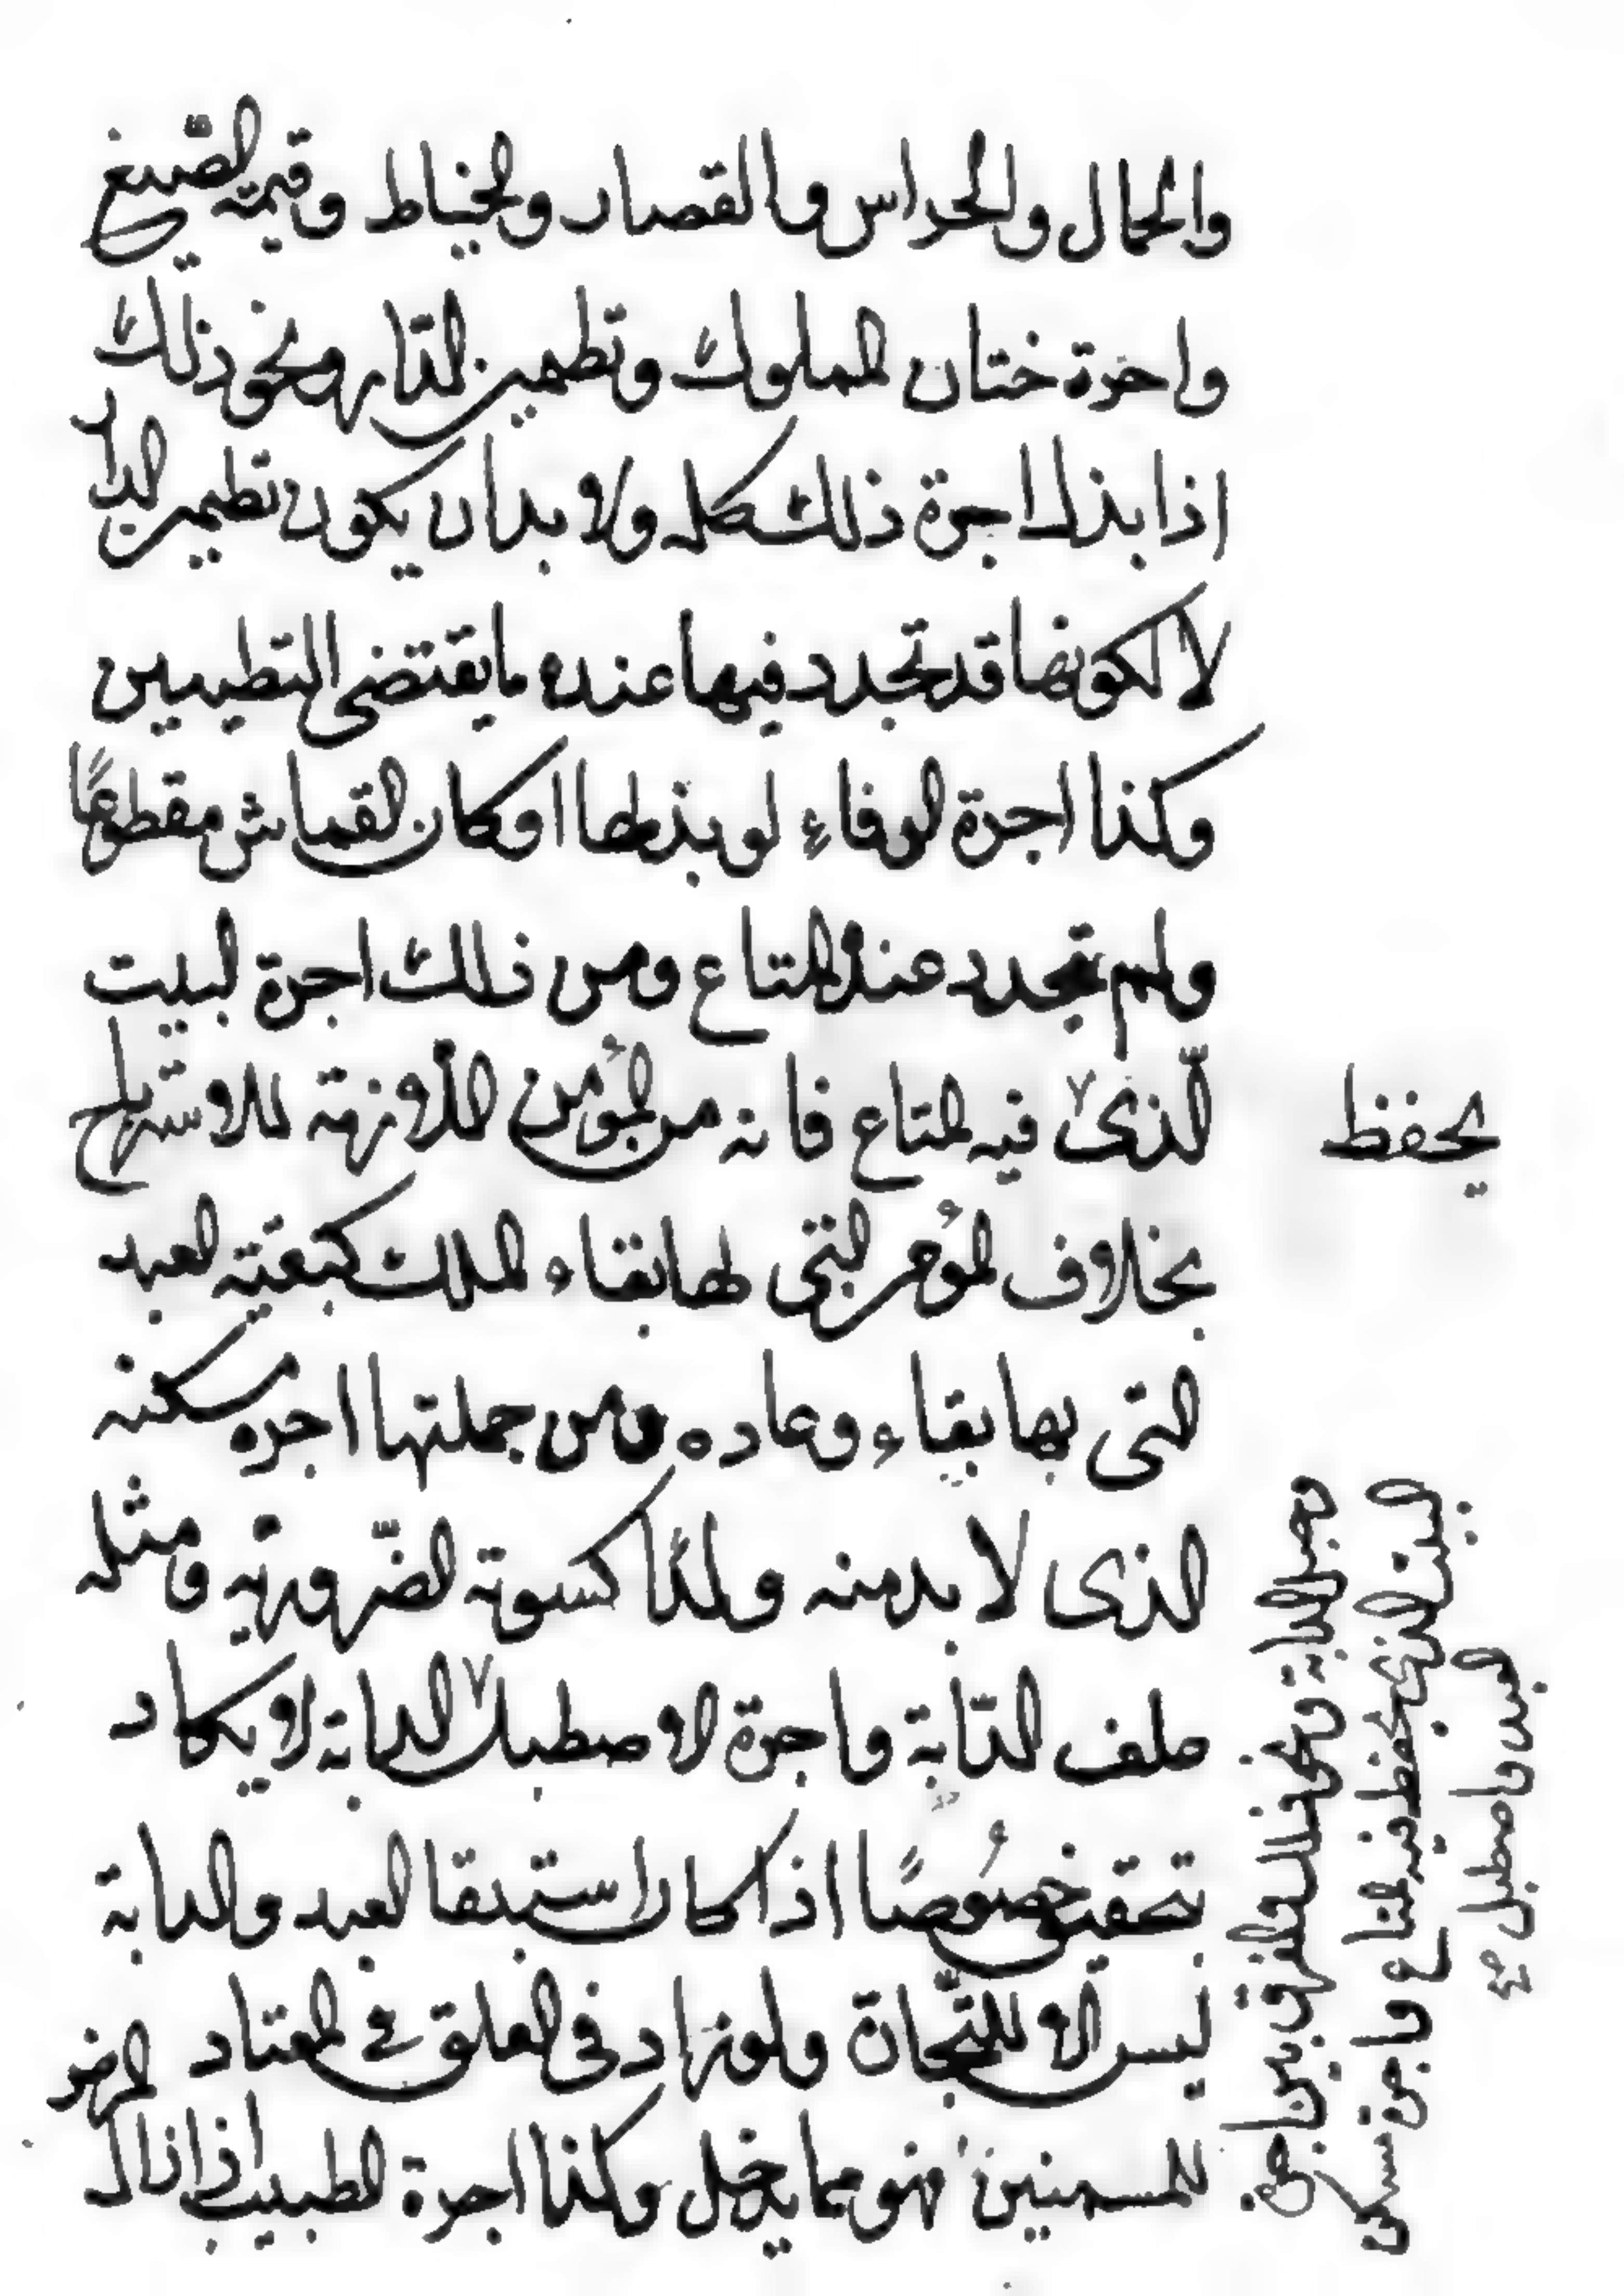 والحمال والحراس والقصار والخياط وقيمة الصّبغ
واجرة ختان المملوك وتطيين الدّار ونحو ذلك
اذا بذل اجرة ذلك كله ولا بد ان يكون تطيين الدار
لا لكونها قد تجدد فيها عنده ما يقتضى التطيين
وكذا اجرة الرفاء لو بذلها او كان القماش مقطوعًا
ولم تجدد عند المتاع ومن ذلك اجرة البيت
الّذى فيه المتاع فانه من المؤمن اللازمة للاسترباح
يحفظ
بخلاف المؤمن التى لها بقاء الملك كنفقة العبد
التى بها بقاء وعاده ومن جملتها اجره مسكنه
الذى لا بد منه ولهذا كسوته الضّرورية ومثله
علف الدّابة واجرة الاصطبل الدابة لا يكاد
تحقيق خصُوصًا اذا كان استبقا العبد والدابة
ليس الا للتّجاة ولو زاد فى العلق على المعتاد
للتسمين فهو مما يدخل وكذا اجرة الطبيب اذا زال المرض
الدابة ونحو ذلك والفرق بين اجرة
البيت الذى يحفظ فيه المتاع واجرة مسكن
العبد واصطبل